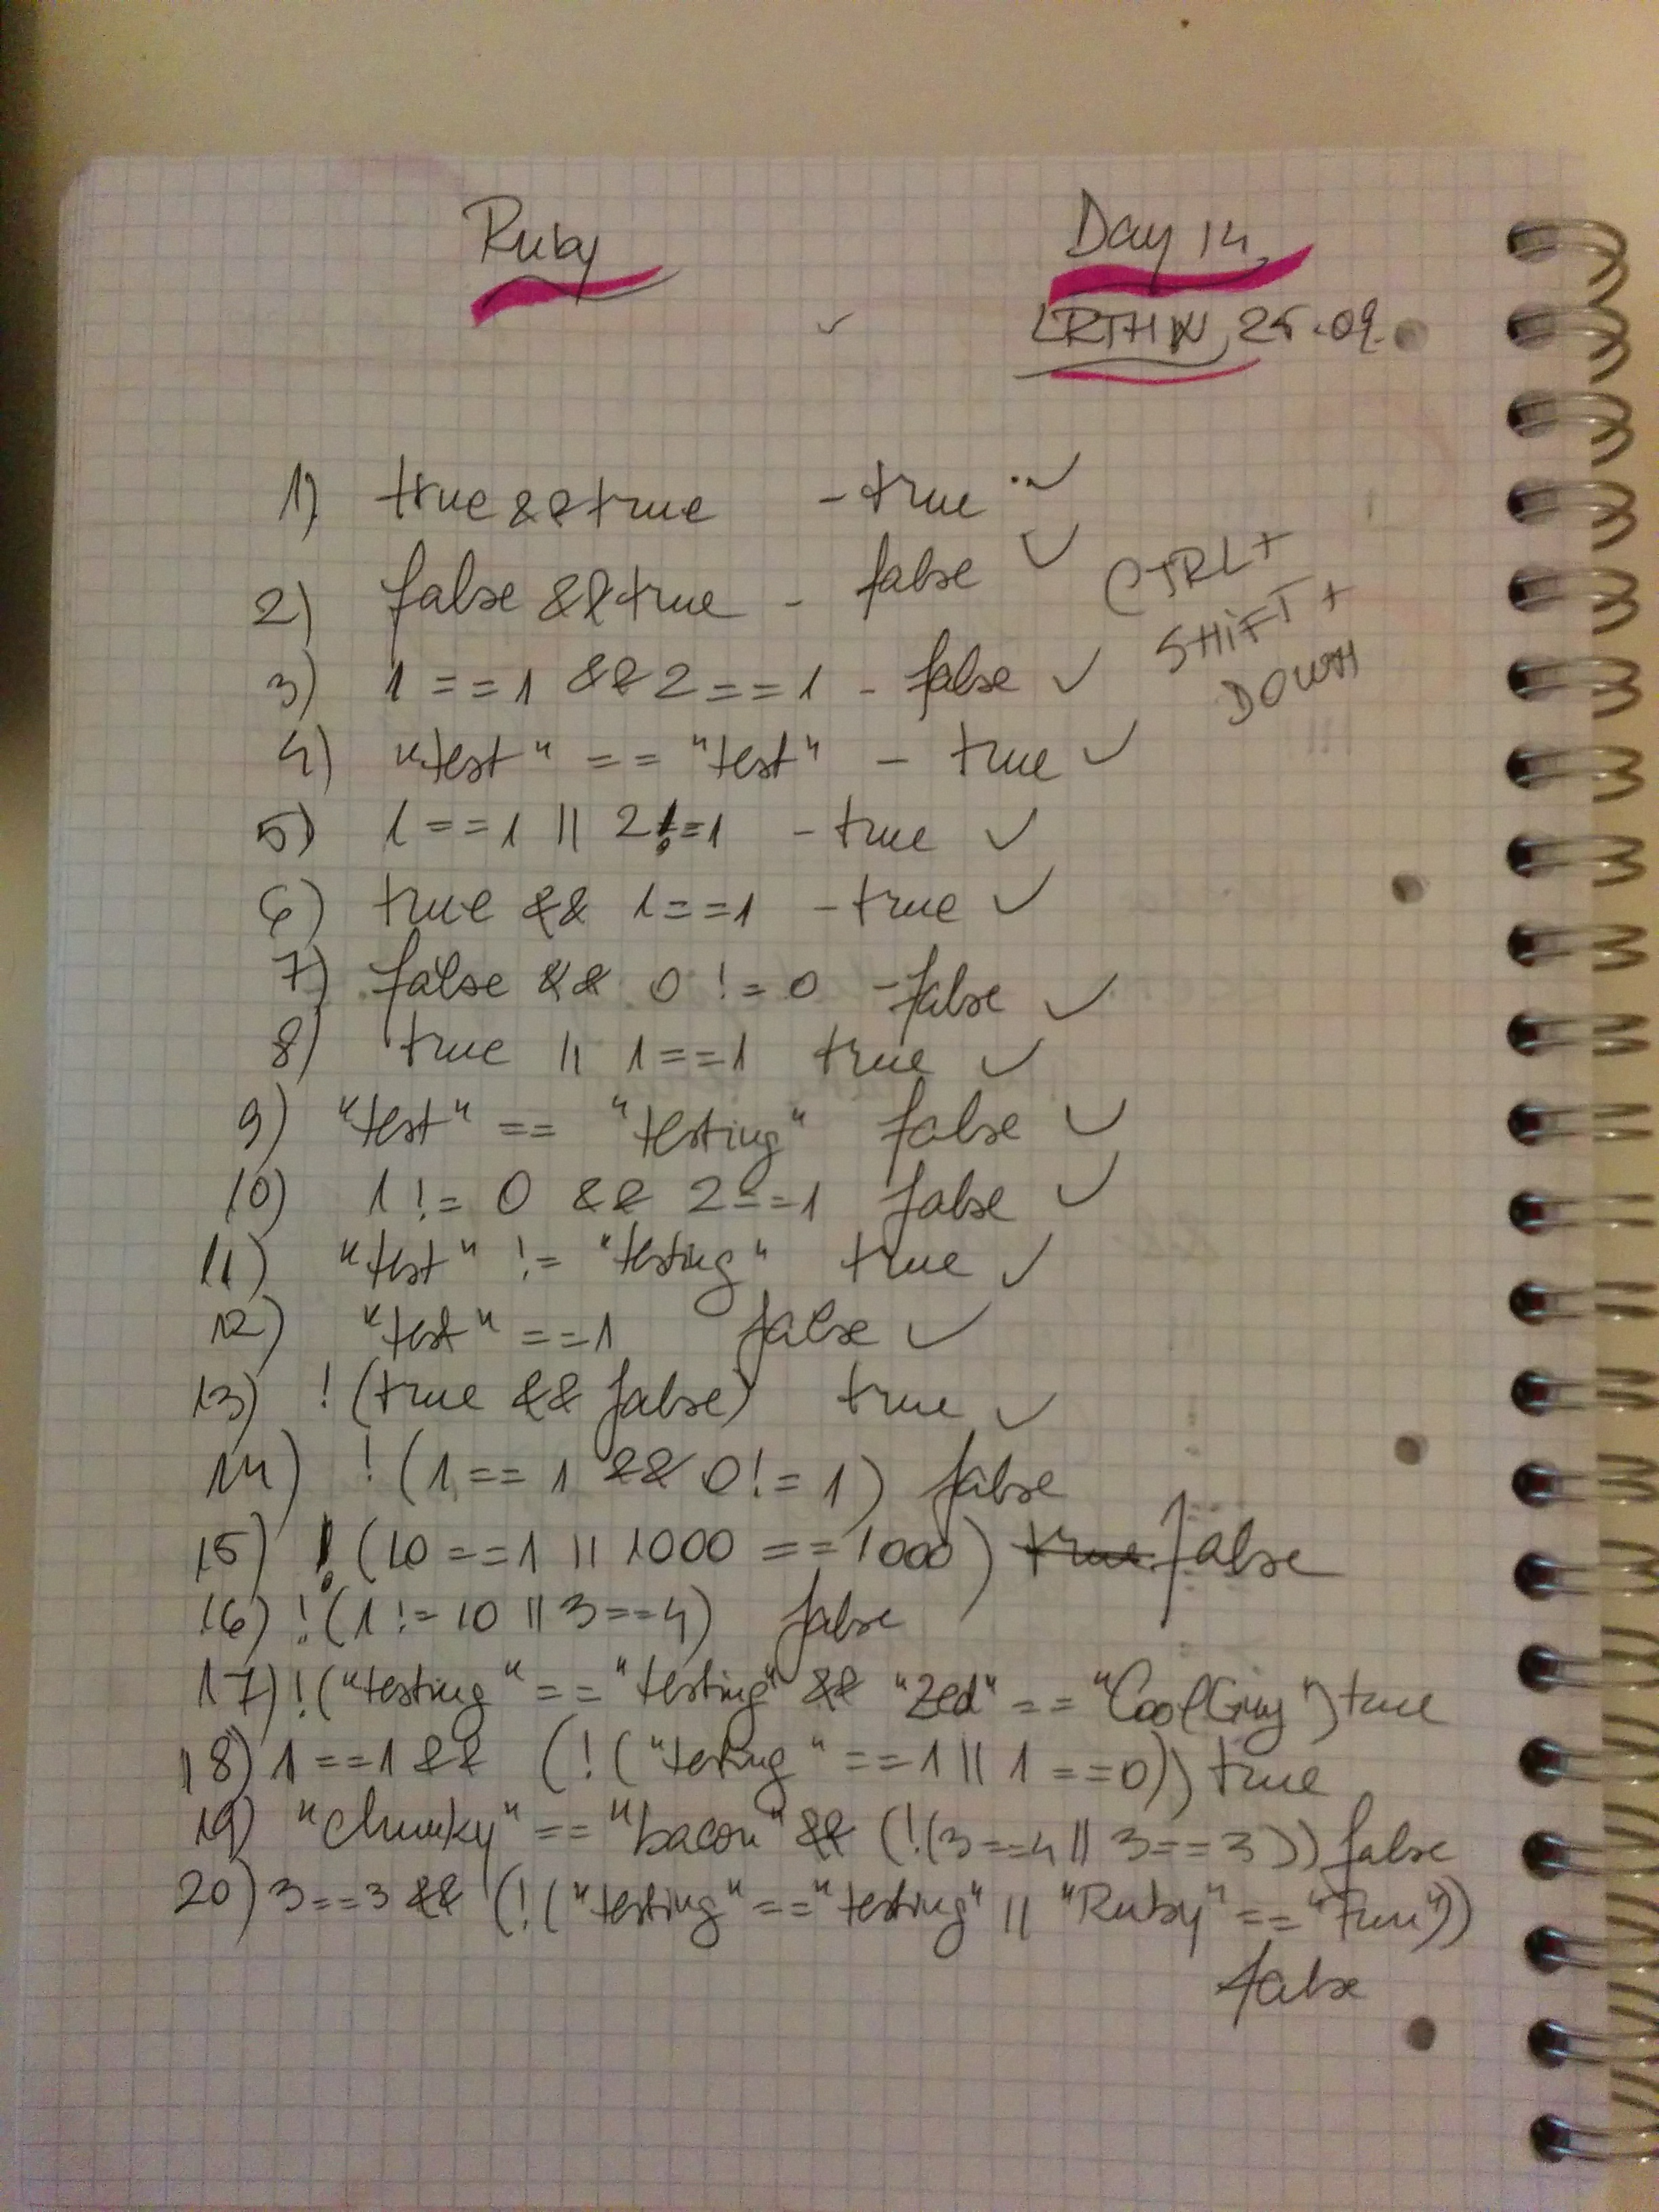 Ruby Day 14
LRTHW, 25.09.
1) true && true - true
2) false && true - false
CTRL+
SHIFT+
DOWN
!!
3) 1 == 1 && 2 == 1 - false
4) "test" == "test" - true
5) 1 == 1 || 2 != 1 - true
6) true && 1 == 1 - true
7) false && 0 != 0 - false
8) true || 1 == 1 true
9) "test" == "testing" false
10) 1 != 0 && 2 == 1 false
11) "test" != "testing" true
12) "test" == 1 false
13) !(true && false) true
14) !(1 == 1 && 0 != 1) false
15) !(10 == 1 || 1000 == 1000) true false
16) !(1 != 10 || 3 == 4) false
17) !("testing" == "testing" && "Zed" == "Cool Guy") true
18) 1 == 1 && (!("testing" == 1 || 1 == 0)) true
19) "chunky" == "bacon" && (!(3 == 4 || 3 == 3)) false
20) 3 == 3 && (!("testing" == "testing" || "Ruby" == "Fun"))
false